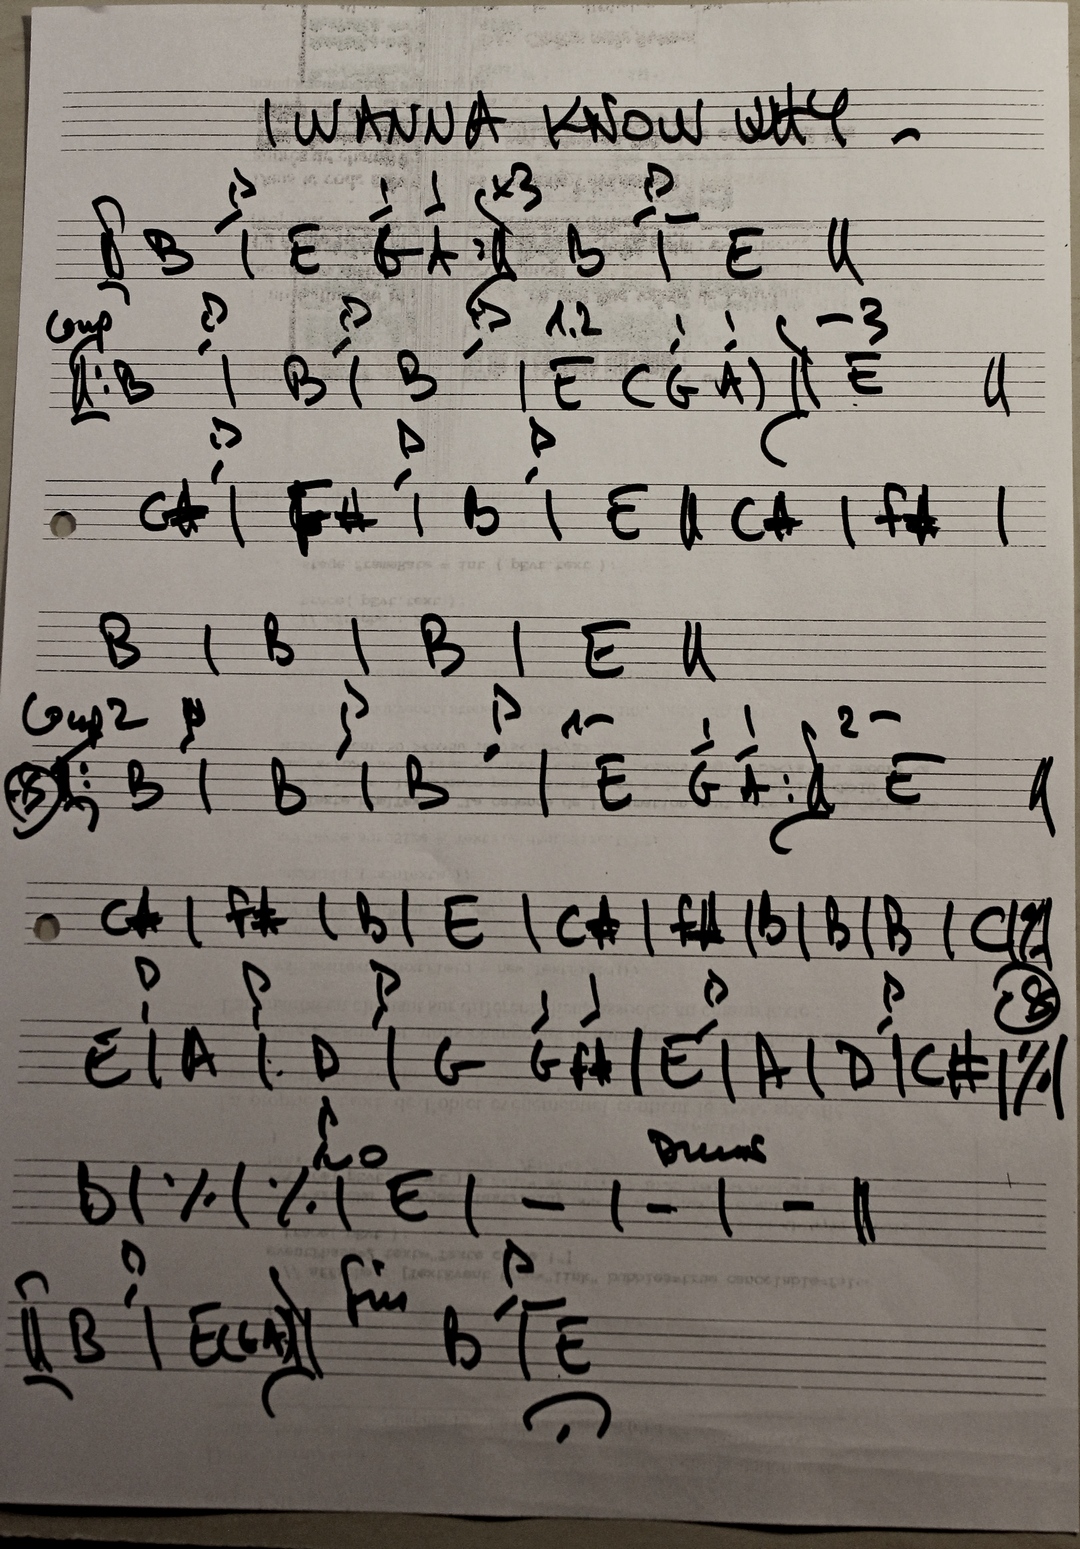 I WANNA KNOW WHY
x3
B | E G A :|| B | E ||
Coup 1.2 - 3
||: B | B | B | E (G A) || E ||
C# | F# | B | E || C# | F# |
B | B | B | E ||
Coup 2 1- 2-
||: B | B | B | E G A :|| E ||
C# | F# | B | E | C# | F# | B | B | B | C |%|
E | A | D | G G F# | E | A | D | C# | % |
Drums
B | % | % | E | - | - | - ||
|| B | E (G A) || fin B | E